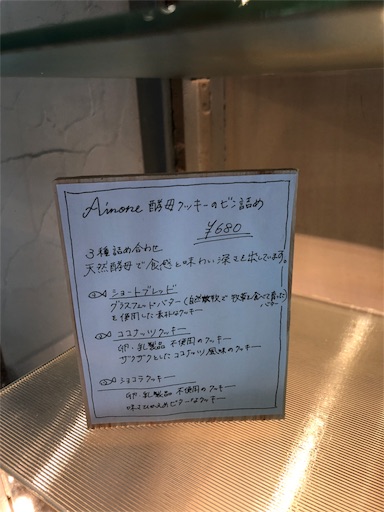 Ainone 酵母クッキーのビン詰め
¥680
3種詰め合わせ
天然酵母で食感と味わい深さを出しています。
ショートブレッド
グラスフェッドバター(自然放牧で牧草を食べて育った
バター)
を使用した素朴なクッキー
ココナッツクッキー
卵・乳製品 不使用のクッキー
ザクザクとしたココナッツ風味のクッキー
ショコラクッキー
卵・乳製品 不使用のクッキー
味ひかえめビターなクッキー